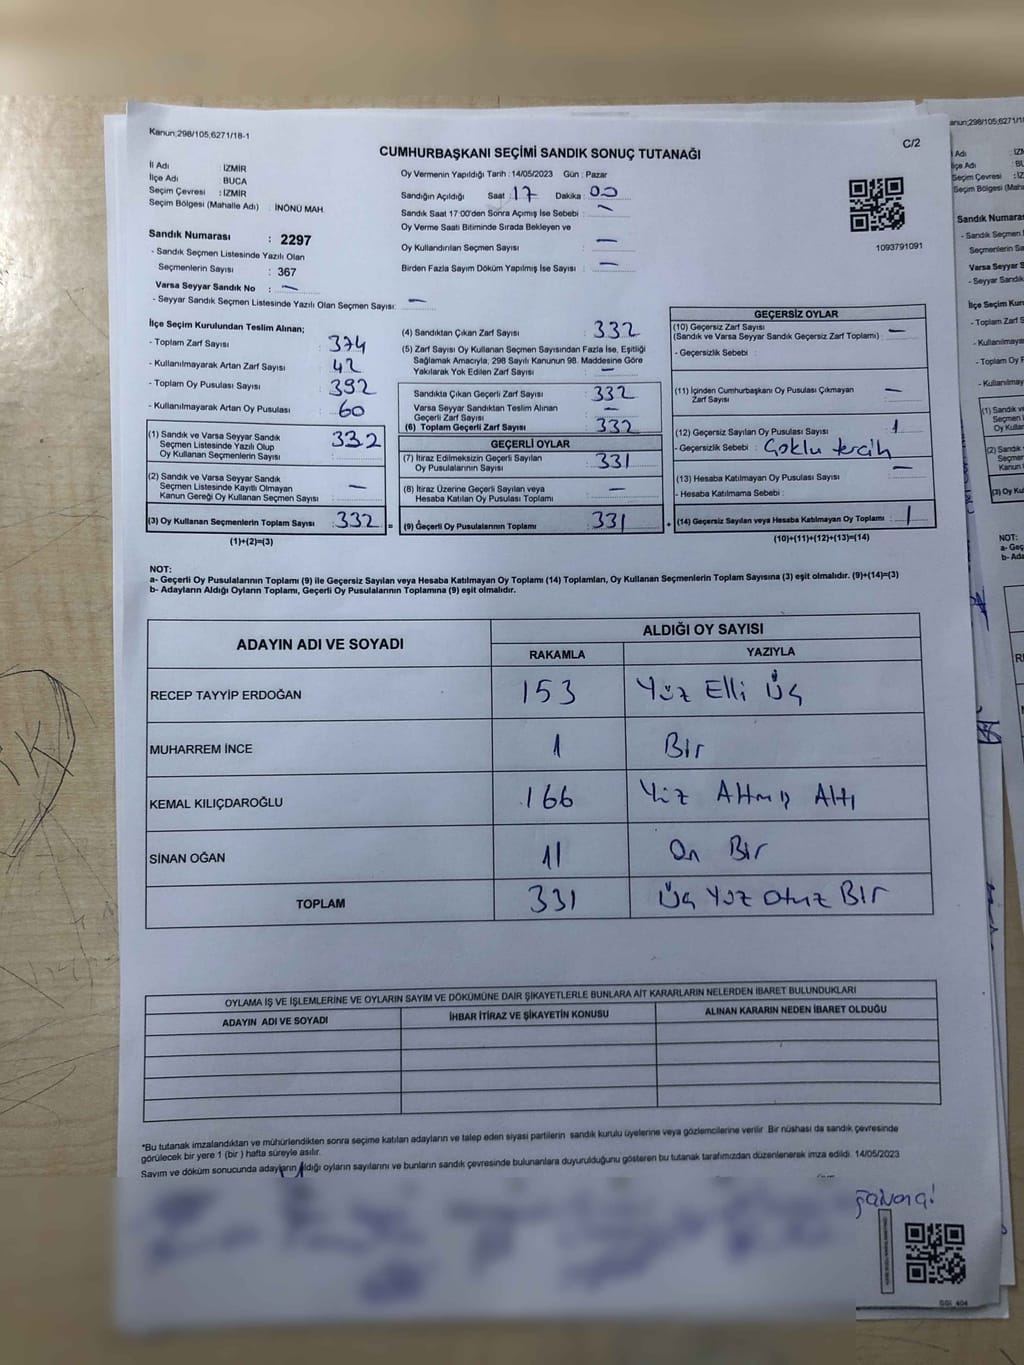 Kanun;298/105;6271/18-1
C/2
CUMHURBAŞKANI SEÇİMİ SANDIK SONUÇ TUTANAĞI
İl Adı : İZMİR
İlçe Adı : BUCA
Seçim Çevresi : İZMİR
Seçim Bölgesi (Mahalle Adı) : İNÖNÜ MAH.
Sandık Numarası : 2297
- Sandık Seçmen Listesinde Yazılı Olan
Seçmenlerin Sayısı : 367
Varsa Seyyar Sandık No : —
- Seyyar Sandık Seçmen Listesinde Yazılı Olan Seçmen Sayısı: —
Oy Vermenin Yapıldığı Tarih : 14/05/2023 Gün : Pazar
Sandığın Açıldığı Saat : 17 Dakika : 00
Sandık Saat 17:00'den Sonra Açımış İse Sebebi : —
Oy Verme Saati Bitiminde Sırada Bekleyen ve
Oy Kullandırılan Seçmen Sayısı : —
Birden Fazla Sayım Döküm Yapılmış İse Sayısı : —
1093791091
İlçe Seçim Kurulundan Teslim Alınan;
- Toplam Zarf Sayısı : 374
- Kullanılmayarak Artan Zarf Sayısı : 42
- Toplam Oy Pusulası Sayısı : 392
- Kullanılmayarak Artan Oy Pusulası : 60
(1) Sandık ve Varsa Seyyar Sandık
Seçmen Listesinde Yazılı Olup
Oy Kullanan Seçmenlerin Sayısı : 332
(2) Sandık ve Varsa Seyyar Sandık
Seçmen Listesinde Kayıtlı Olmayan
Kanun Gereği Oy Kullanan Seçmen Sayısı : —
(3) Oy Kullanan Seçmenlerin Toplam Sayısı : 332 =
(1)+(2)=(3)
(4) Sandıktan Çıkan Zarf Sayısı : 332
(5) Zarf Sayısı Oy Kullanan Seçmen Sayısından Fazla İse, Eşitliği
Sağlamak Amacıyla, 298 Sayılı Kanunun 98. Maddesine Göre
Yakılarak Yok Edilen Zarf Sayısı : —
Sandıkta Çıkan Geçerli Zarf Sayısı : 332
Varsa Seyyar Sandıktan Teslim Alınan
Geçerli Zarf Sayısı : —
(6) Toplam Geçerli Zarf Sayısı : 332
GEÇERLİ OYLAR
(7) İtiraz Edilmeksizin Geçerli Sayılan
Oy Pusulalarının Sayısı : 331
(8) İtiraz Üzerine Geçerli Sayılan veya
Hesaba Katılan Oy Pusulası Toplamı : —
(9) Geçerli Oy Pusulalarının Toplamı : 331 +
GEÇERSİZ OYLAR
(10) Geçersiz Zarf Sayısı : —
(Sandık ve Varsa Seyyar Sandık Geçersiz Zarf Toplamı)
- Geçersizlik Sebebi :
(11) İçinden Cumhurbaşkanı Oy Pusulası Çıkmayan
Zarf Sayısı : —
(12) Geçersiz Sayılan Oy Pusulası Sayısı : 1
- Geçersizlik Sebebi : Çoklu tercih
(13) Hesaba Katılmayan Oy Pusulası Sayısı : —
- Hesaba Katılmama Sebebi :
(14) Geçersiz Sayılan veya Hesaba Katılmayan Oy Toplamı : 1
(10)+(11)+(12)+(13)=(14)
NOT:
a- Geçerli Oy Pusulalarının Toplamı (9) ile Geçersiz Sayılan veya Hesaba Katılmayan Oy Toplamı (14) Toplamları, Oy Kullanan Seçmenlerin Toplam Sayısına (3) eşit olmalıdır. (9)+(14)=(3)
b- Adayların Aldığı Oyların Toplamı, Geçerli Oy Pusulalarının Toplamına (9) eşit olmalıdır.
ADAYIN ADI VE SOYADI ALDIĞI OY SAYISI
RAKAMLA YAZIYLA
RECEP TAYYİP ERDOĞAN 153 Yüz Elli Üç
MUHARREM İNCE 1 Bir
KEMAL KILIÇDAROĞLU 166 Yüz Altmış Altı
SİNAN OĞAN 11 On Bir
TOPLAM 331 Üç Yüz Otuz Bir
OYLAMA İŞ VE İŞLEMLERİNE VE OYLARIN SAYIM VE DÖKÜMÜNE DAİR ŞİKAYETLERLE BUNLARA AİT KARARLARIN NELERDEN İBARET BULUNDUKLARI
ADAYIN ADI VE SOYADI İHBAR İTİRAZ VE ŞİKAYETİN KONUSU ALINAN KARARIN NEDEN İBARET OLDUĞU
*Bu tutanak imzalandıktan ve mühürlendikten sonra seçime katılan adayların ve talep eden siyasi partilerin sandık kurulu üyelerine veya gözlemcilerine verilir. Bir nüshası da sandık çevresinde
görülecek bir yere 1 (bir ) hafta süreyle asılır.
Sayım ve döküm sonucunda adayların aldığı oyların sayılarını ve bunların sandık çevresinde bulunanlara duyurulduğunu gösteren bu tutanak tarafımızdan düzenlenerek imza edildi. 14/05/2023